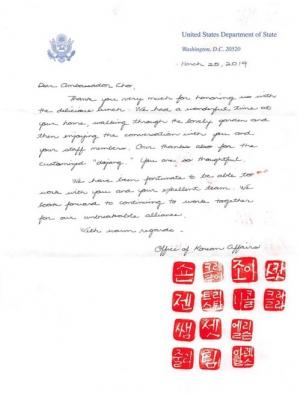 United States Department of State
Washington, D.C. 20520
March 20, 2019
Dear Ambassador Cho,
Thank you very much for honoring us with
the delicious lunch. We had a wonderful time at
your home, walking through the lovely garden and
then enjoying the conversation with you and
your staff members. Our thanks also for the
customized "dojang." You are so thoughtful.
We have been fortunate to be able to
work with you and your excellent team. We
look forward to continuing to work together
for our unbreakable alliance.
With warm regards,
Office of Korean Affairs
숀 조이
젠 트리스탄 니콜
쌤 쳇 에릴
줄리 팀 알렉스